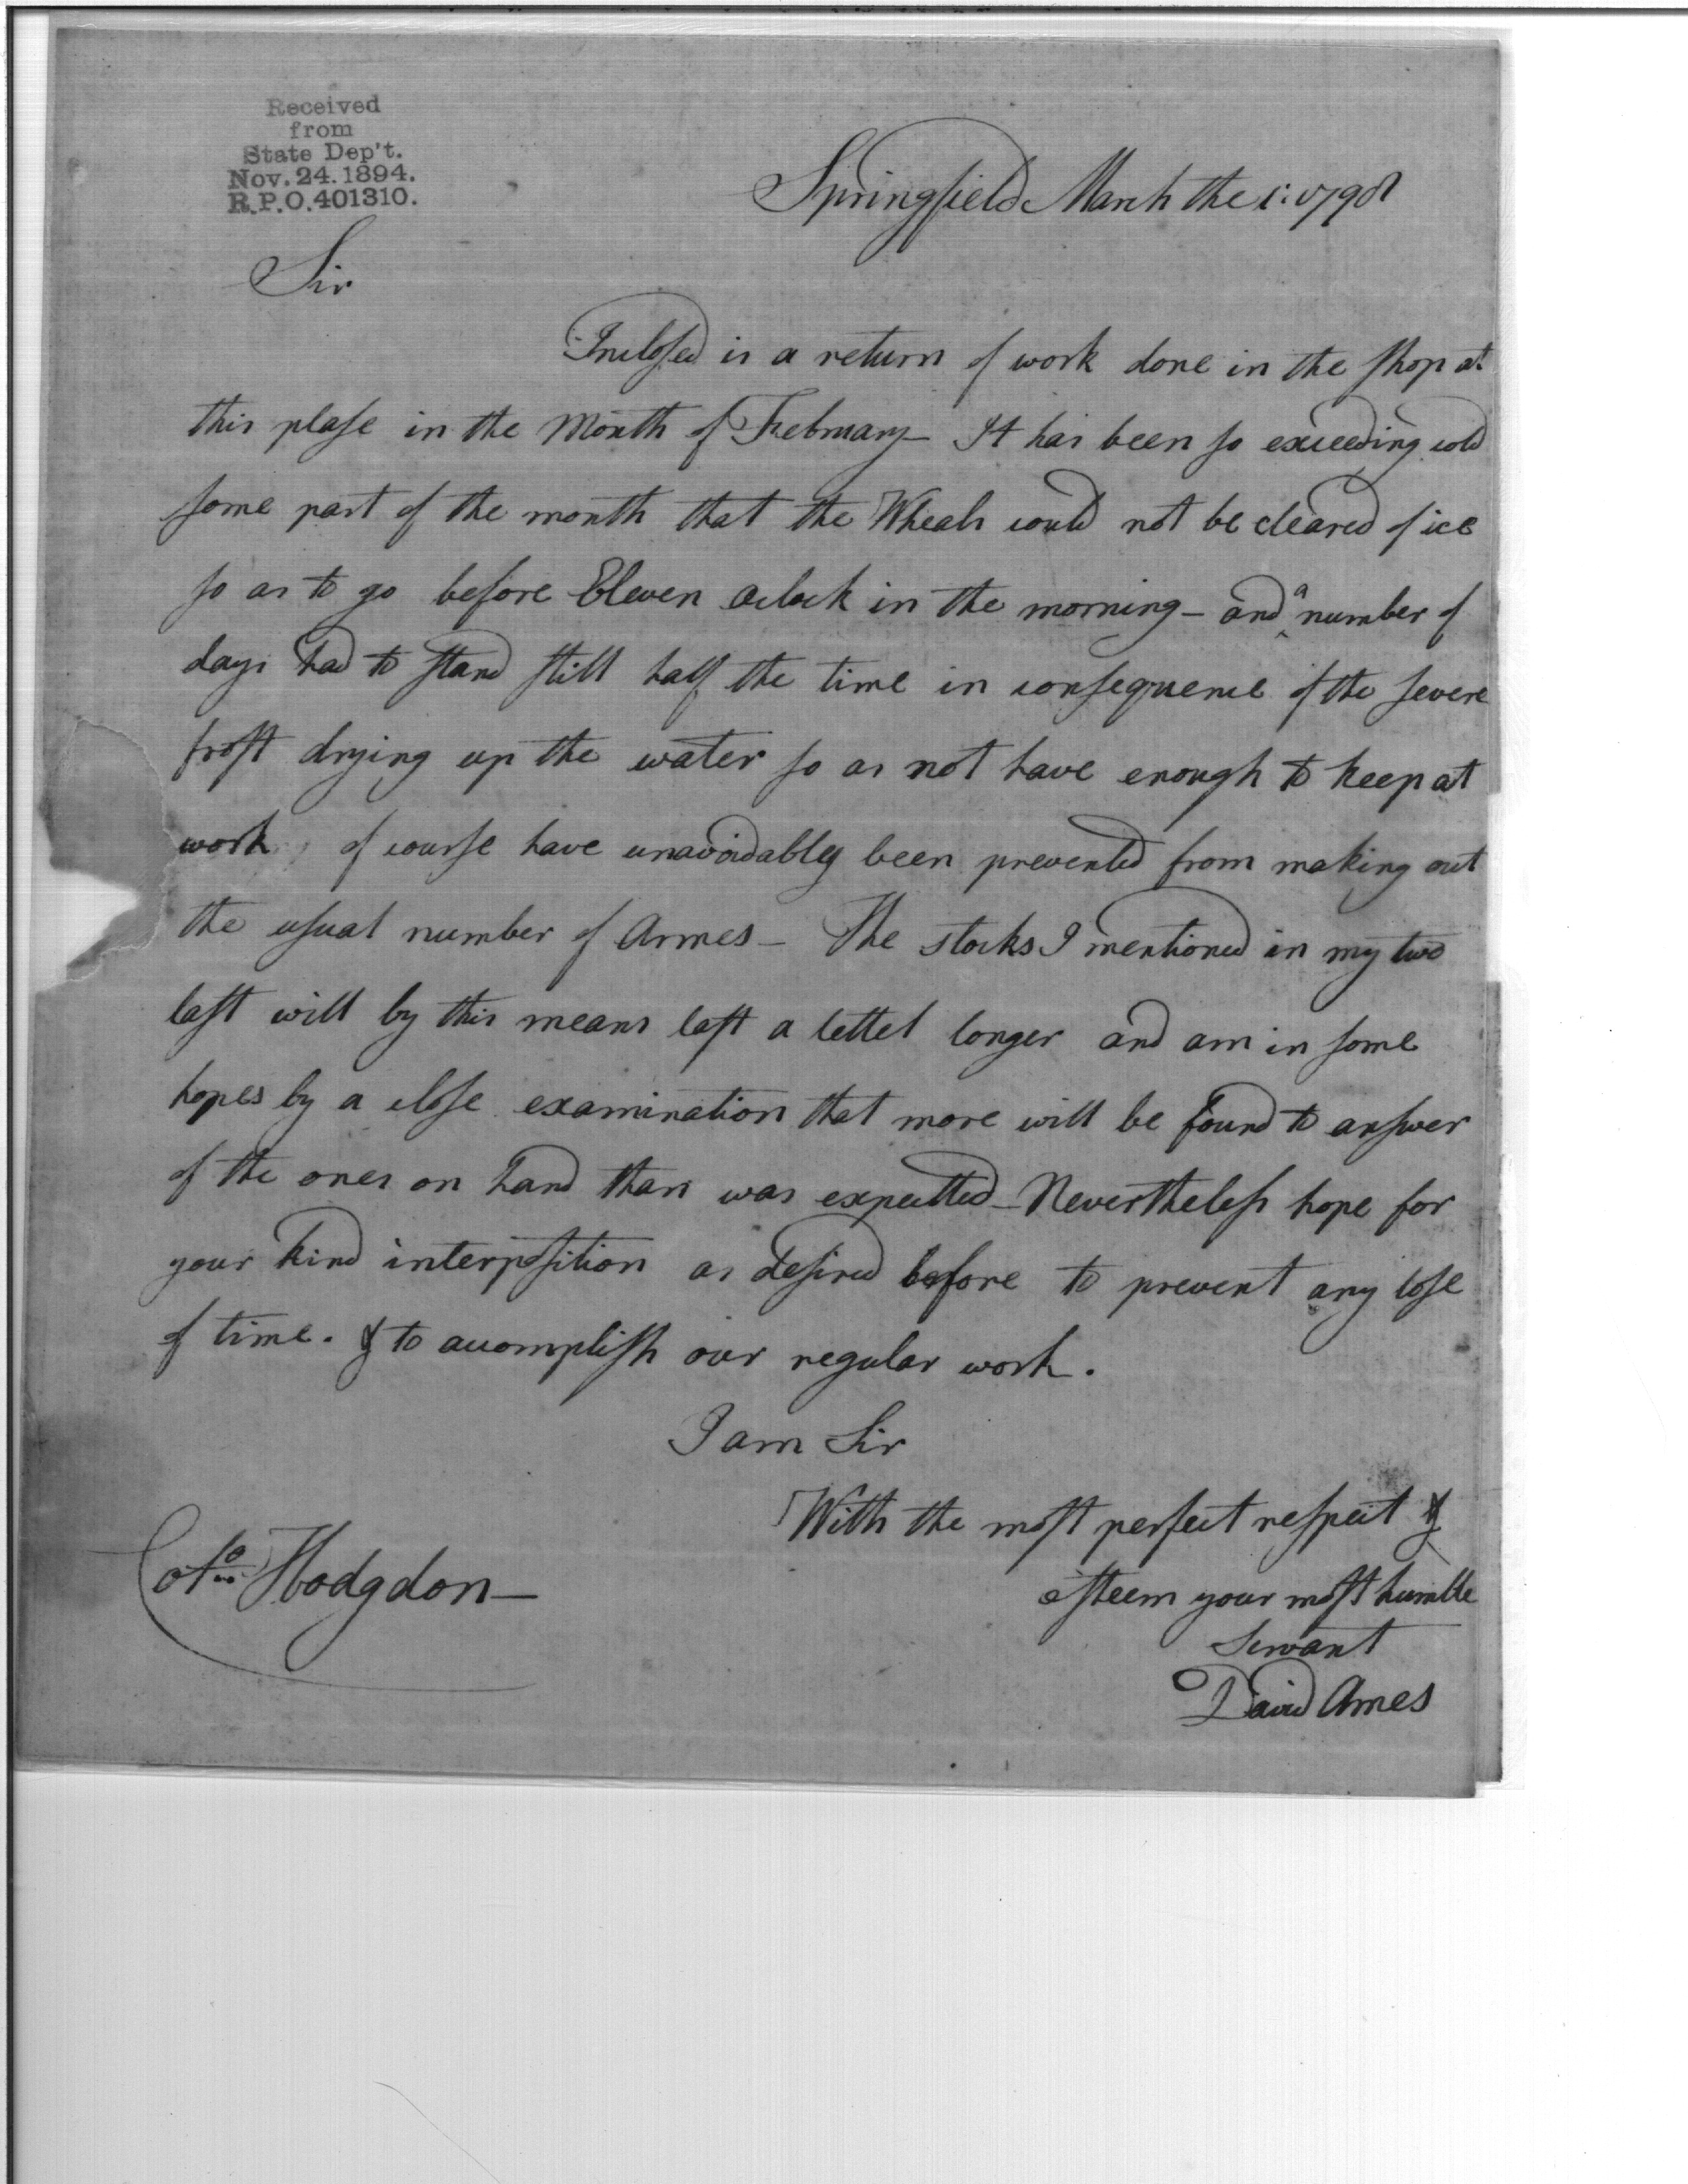 Received
from
State Dep't.
Nov. 24. 1894.
R.P.O. 401310.
Springfield March the 1: 1798
Sir
Inclosed is a return of work done in the shop at
this plase in the Month of Febmary – It has been so exceeding cold
some part of the month that the Wheals could not be cleared of ice
so as to go before Eleven oclock in the morning – and a number of
days had to stand still half the time in consequence of the severe
frost drying up the water so as not have enough to keep at
work of course have unavoidably been prevented from making out
the usual number of Armes – The stocks I mentioned in my two
last will by this means last a lettel longer and am in some
hopes by a close examination that more will be found to answer
of the ones on hand than was expectted – Nevertheless hope for
your kind interposition as desired before to prevent any lose
of time. & to accomplish our regular work.
I am Sir
With the most perfect respect &
esteem your most humble
Servant
David Ames
Colo. Hodgdon –